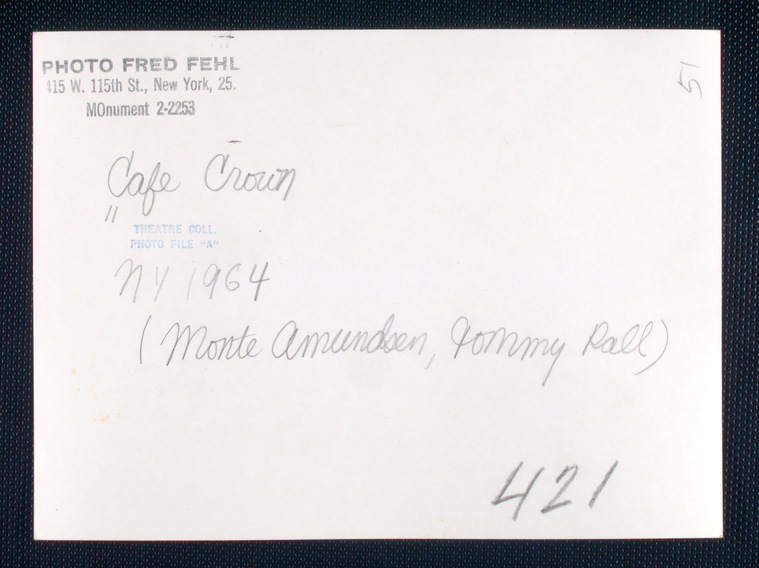 PHOTO FRED FEHL
415 W. 115th St., New York, 25.
MOnument 2-2253
51
Cafe Crown
"
THEATRE COLL.
PHOTO FILE "A"
NY 1964
(Monte Amundsen, Tommy Rall)
421